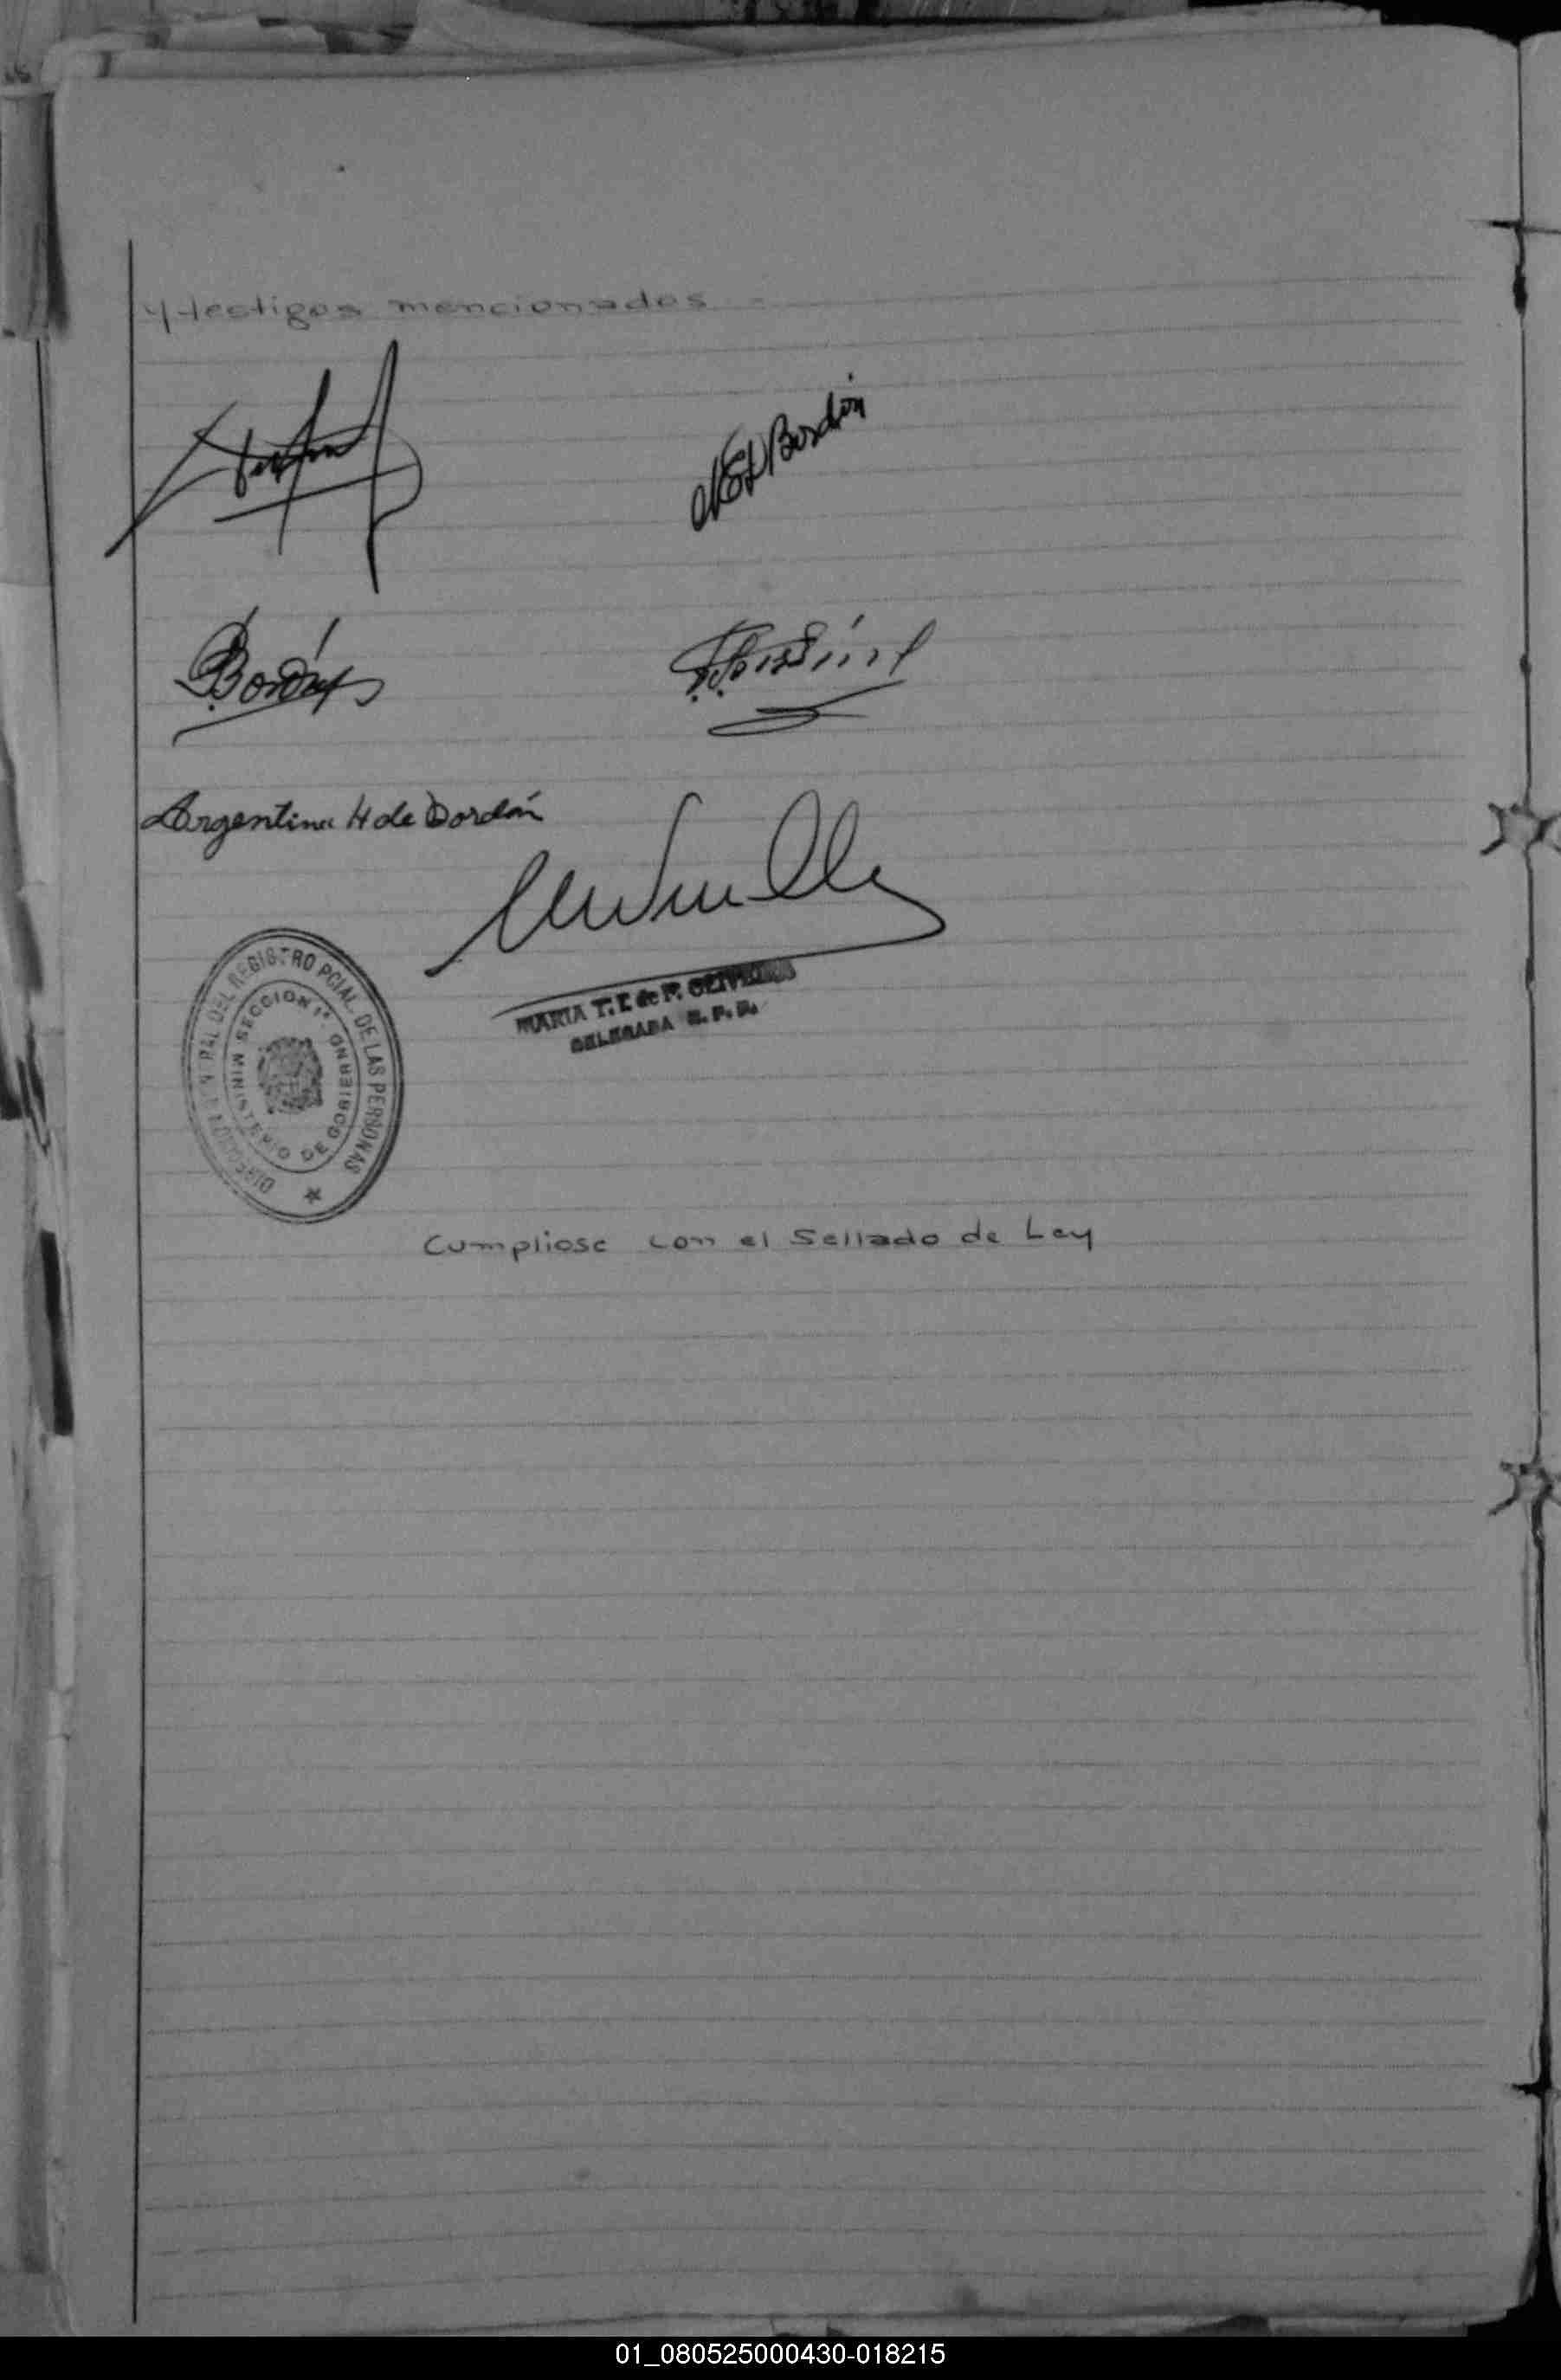 y testigos mencionados =
NEL Bordón
Bordón
Argentina H de Bordón
DIRECCION GENERAL DEL REGISTRO PCIAL. DE LAS PERSONAS
SECCION 1ª. MINISTERIO DE GOBIERNO
MARIA T. I. de F. OLIVEIRA
DELEGADA R. P. P.
Cumpliose con el Sellado de Ley
01_080525000430-018215